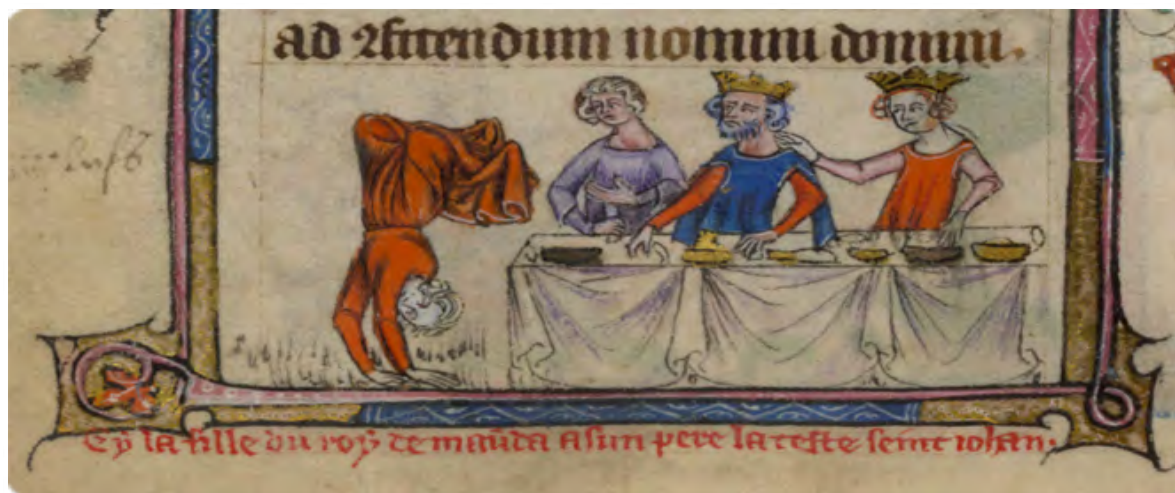 ad ꝯfitendum nomini domini.
Cy la fille du roẏ demaūda a sun pere la teste seint iohan.